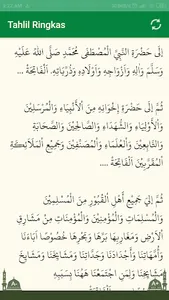 Tahlil Ringkas
إِلَى حَضْرَةِ النَّبِيِّ الْمُصْطَفَى مُحَمَّدٍ صَلَّى اللهُ عَلَيْهِ
وَسَلَّمَ وَآلِهِ وَأَزْوَاجِهِ وَأَوْلَادِهِ وَذُرِّيَّاتِهِ. الْفَاتِحَةُ ....
ثُمَّ إِلَى حَضْرَةِ إِخْوَانِهِ مِنَ الْأَنْبِيَاءِ وَالْمُرْسَلِيْنَ
وَالْأَوْلِيَاءِ وَالشُّهَدَاءِ وَالصَّالِحِيْنَ وَالصَّحَابَةِ
وَالتَّابِعِيْنَ وَالْعُلَمَاءِ وَالْمُصَنِّفِيْنَ وَجَمِيْعِ الْمَلَائِكَةِ
الْمُقَرَّبِيْنَ. الْفَاتِحَةُ ....
ثُمَّ إِلَى جَمِيْعِ أَهْلِ الْقُبُوْرِ مِنَ الْمُسْلِمِيْنَ
وَالْمُسْلِمَاتِ وَالْمُؤْمِنِيْنَ وَالْمُؤْمِنَاتِ مِنْ مَشَارِقِ
الْأَرْضِ وَمَغَارِبِهَا بَرِّهَا وَبَحْرِهَا خُصُوْصًا آبَاءَنَا
وَأُمَّهَاتِنَا وَأَجْدَادَنَا وَجَدَّاتِنَا وَمَشَايِخَنَا وَمَشَايِخَ
مَشَايِخِنَا وَلِمَنِ اجْتَمَعْنَا هٰهُنَا بِسَبَبِهِ